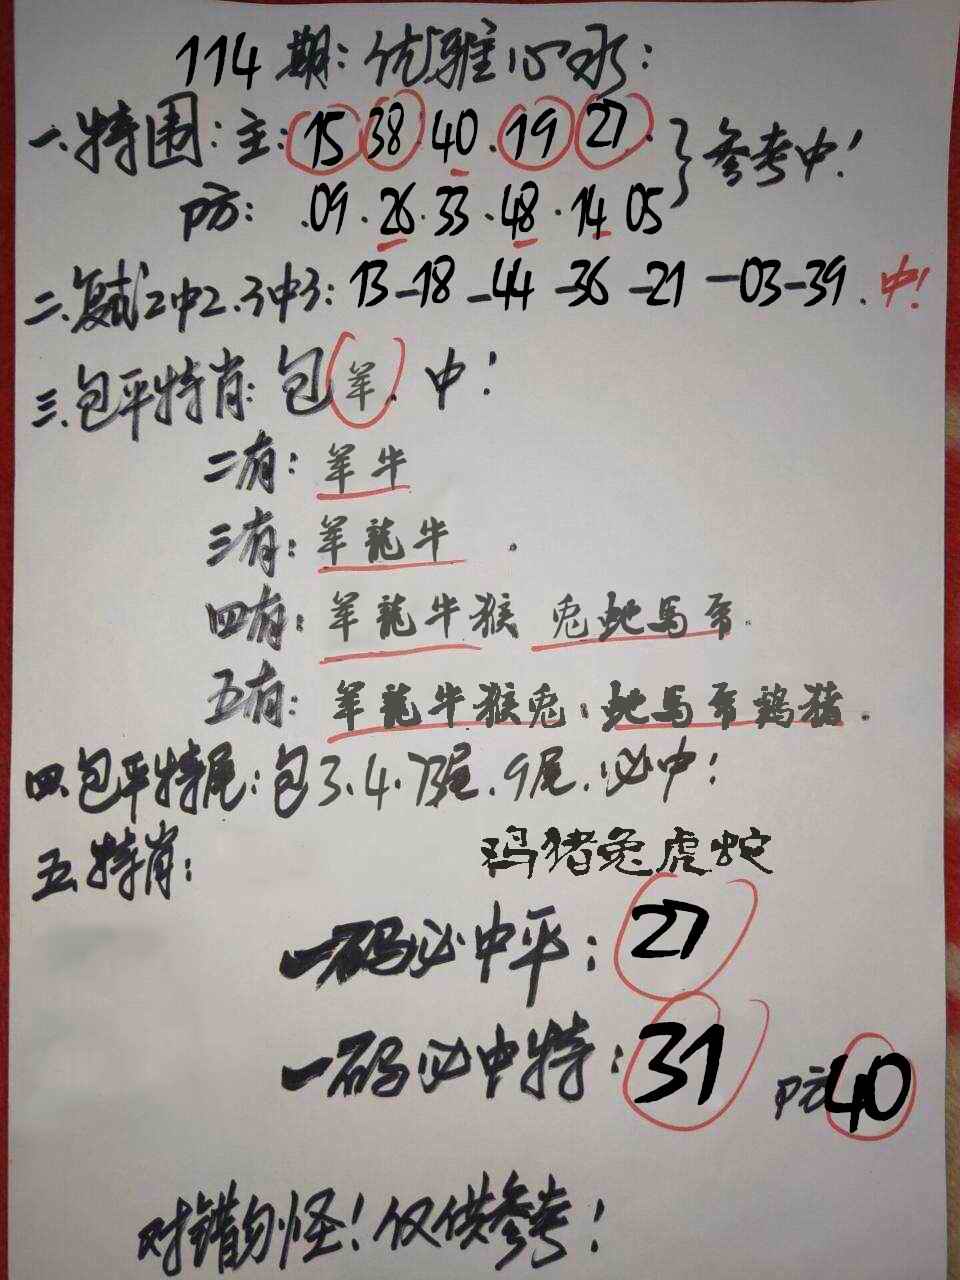 114期：优雅心水：
一.特围：主：15 38 40.19 27. 参考中！
防：.09.26.33.48.14 05
二.复式2中2.3中3：13-18-44-36-21-03-39.中！
三.包平特肖：包羊.中！
二有：羊牛
三有：羊龍牛.
四有：羊龍牛猴 兔蛇馬
五有：羊龍牛猴兔.蛇馬鷄猪.
四.包平特尾：包3.4.7尾.9尾.必中！
五.特肖：
猪兔虎蛇
一码必中平：27
一码必中特：31 防40
对错勿怪！仅供参考！